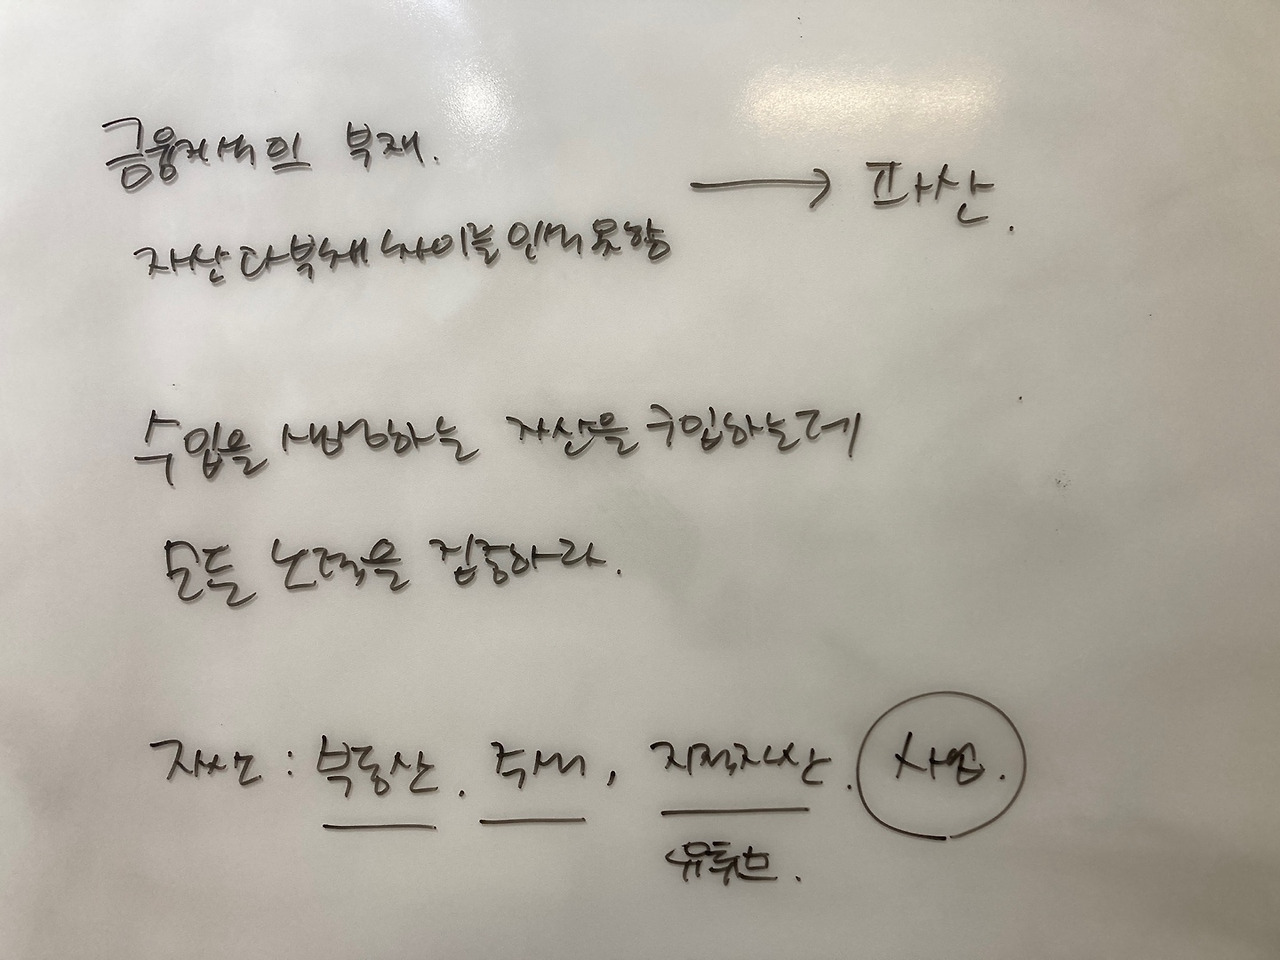 금융지식의 부재.
자산과 부채 차이를 인식 못함
→ 파산.
수입을 생성하는 자산을 구입하는데
모든 노력을 집중하라.
자산 : 부동산. 주식, 지적자산. 사업.
유튜브.